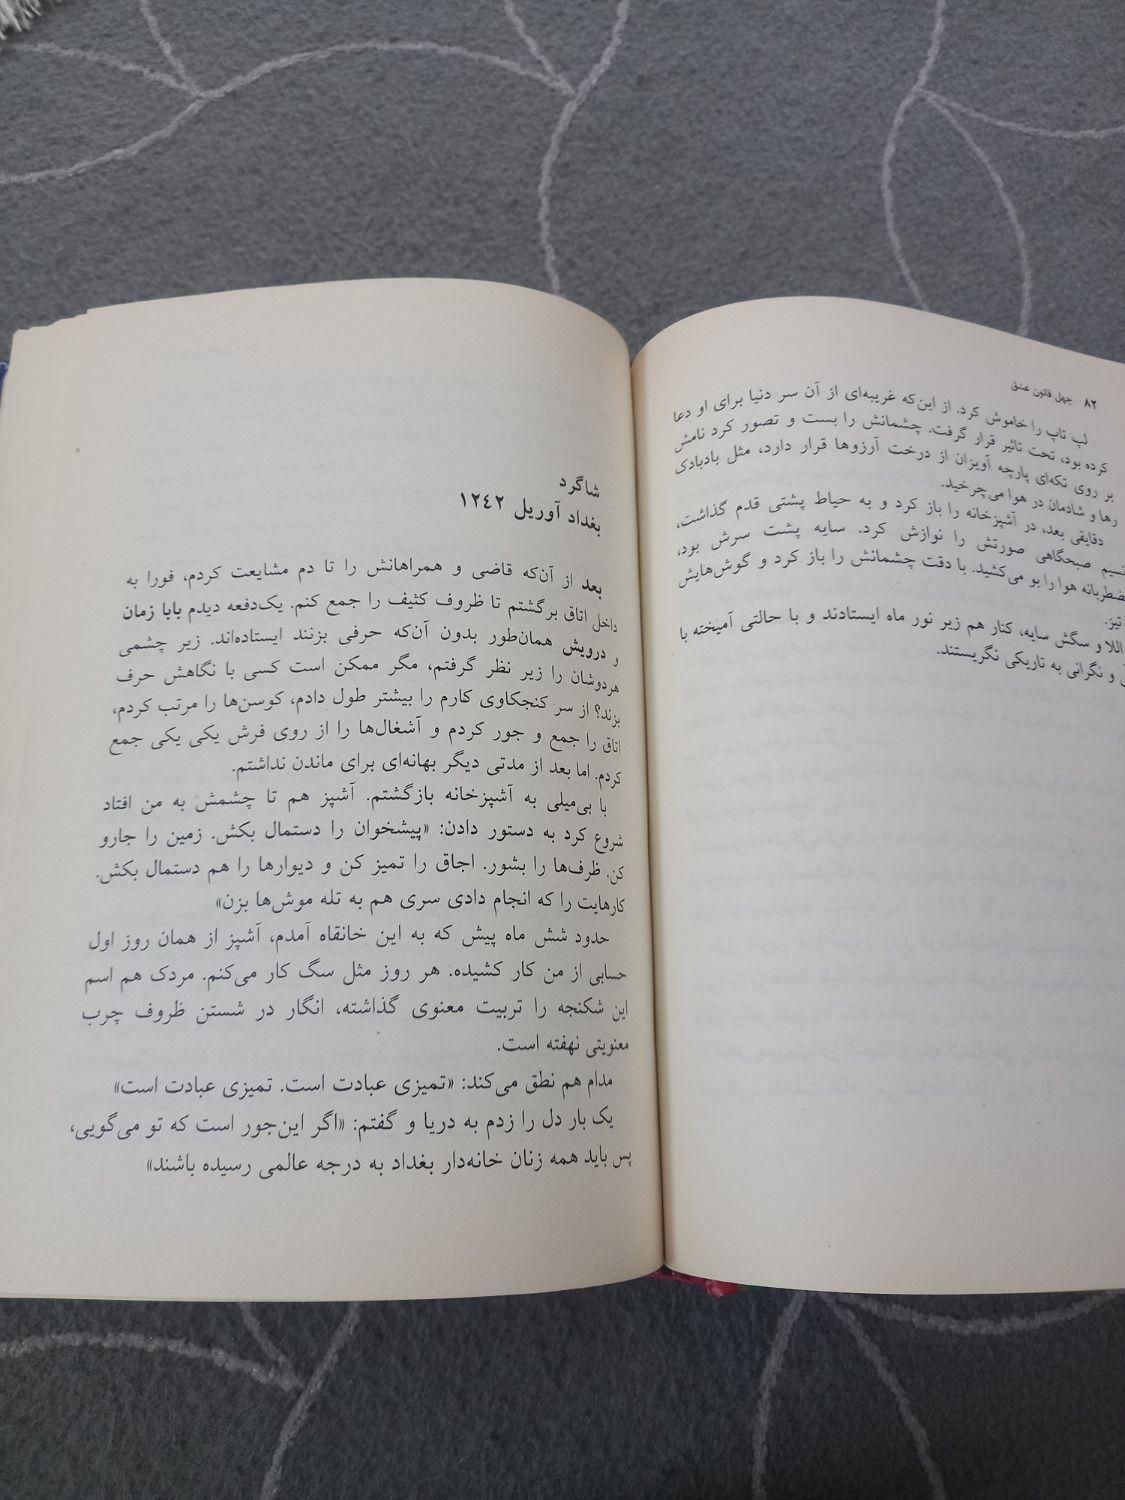 ۸۲ چهل قانون عشق
لپ تاپ را خاموش کرد. از این‌که غریبه‌ای از آن سر دنیا برای او دعا
کرده بود، تحت تاثیر قرار گرفت. چشمانش را بست و تصور کرد نامش
بر روی تکه‌ای پارچه آویزان از درخت آرزوها قرار دارد، مثل بادبادک
رها و شادمان در هوا می‌چرخید.
دقایقی بعد، در آشپزخانه را باز کرد و به حیاط پشتی قدم گذاشت،
نسیم صبحگاهی صورتش را نوازش کرد. سایه پشت سرش بود،
هوا را بو می‌کشید. با دقت چشمانش را باز کرد و گوش‌هایش
تیز.
اللا و سگش سایه، کنار هم زیر نور ماه ایستادند و با حالتی آمیخته با
و نگرانی به تاریکی نگریستند.
شاگرد
بغداد آوریل ۱۲۴۲
بعد از آن‌که قاضی و همراهانش را تا دم مشایعت کردم، فورا به
داخل اتاق برگشتم تا ظروف کثیف را جمع کنم. یک‌دفعه دیدم بابا زمان
و درویش همان‌طور بدون آن‌که حرفی بزنند ایستاده‌اند. زیر چشمی
هردوشان را زیر نظر گرفتم، مگر ممکن است کسی با نگاهش حرف
بزند؟ از سر کنجکاوی کارم را بیشتر طول دادم، کوسن‌ها را مرتب کردم،
اتاق را جمع و جور کردم و آشغال‌ها را از روی فرش یکی یکی جمع
کردم. اما بعد از مدتی دیگر بهانه‌ای برای ماندن نداشتم.
با بی‌میلی به آشپزخانه بازگشتم. آشپز هم تا چشمش به من افتاد
شروع کرد به دستور دادن: «پیشخوان را دستمال بکش. زمین را جارو
کن. ظرف‌ها را بشور. اجاق را تمیز کن و دیوارها را هم دستمال بکش.
کارهایت را که انجام دادی سری هم به تله موش‌ها بزن»
حدود شش ماه پیش که به این خانقاه آمدم، آشپز از همان روز اول
حسابی از من کار کشیده. هر روز مثل سگ کار می‌کنم. مردک هم اسم
این شکنجه را تربیت معنوی گذاشته، انگار در شستن ظروف چرب
معنویتی نهفته است.
مدام هم نطق می‌کند: «تمیزی عبادت است. تمیزی عبادت است»
یک بار دل را زدم به دریا و گفتم: «اگر این‌جور است که تو می‌گویی،
پس باید همه زنان خانه‌دار بغداد به درجه عالمی رسیده باشند»